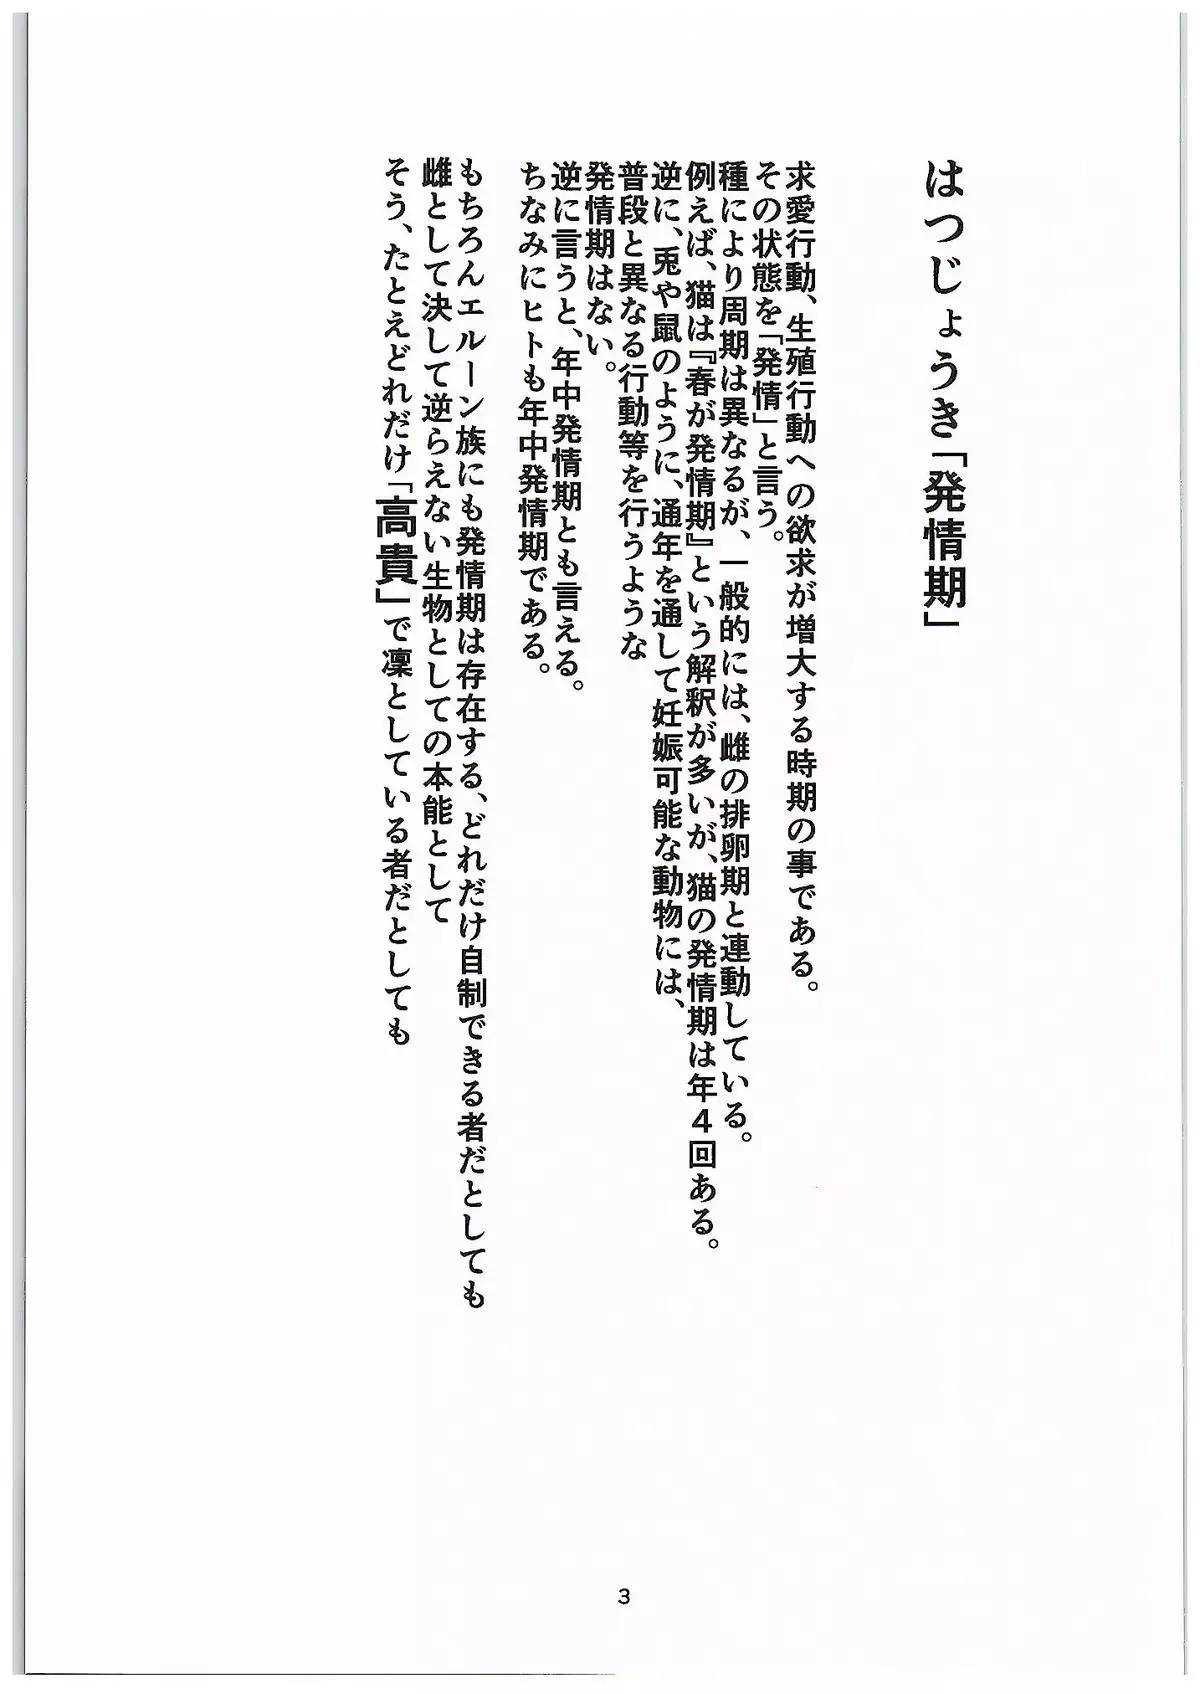 はつじょうき「発情期」
求愛行動、生殖行動への欲求が増大する時期の事である。
その状態を「発情」と言う。
種により周期は異なるが、一般的には、雌の排卵期と連動している。
例えば、猫は『春が発情期』という解釈が多いが、猫の発情期は年４回ある。
逆に、兎や鼠のように、通年を通して妊娠可能な動物には、
普段と異なる行動等を行うような
発情期はない。
逆に言うと、年中発情期とも言える。
ちなみにヒトも年中発情期である。
もちろんエルーン族にも発情期は存在する、どれだけ自制できる者だとしても
雌として決して逆らえない生物としての本能として
そう、たとえどれだけ「高貴」で凜としている者だとしても
3